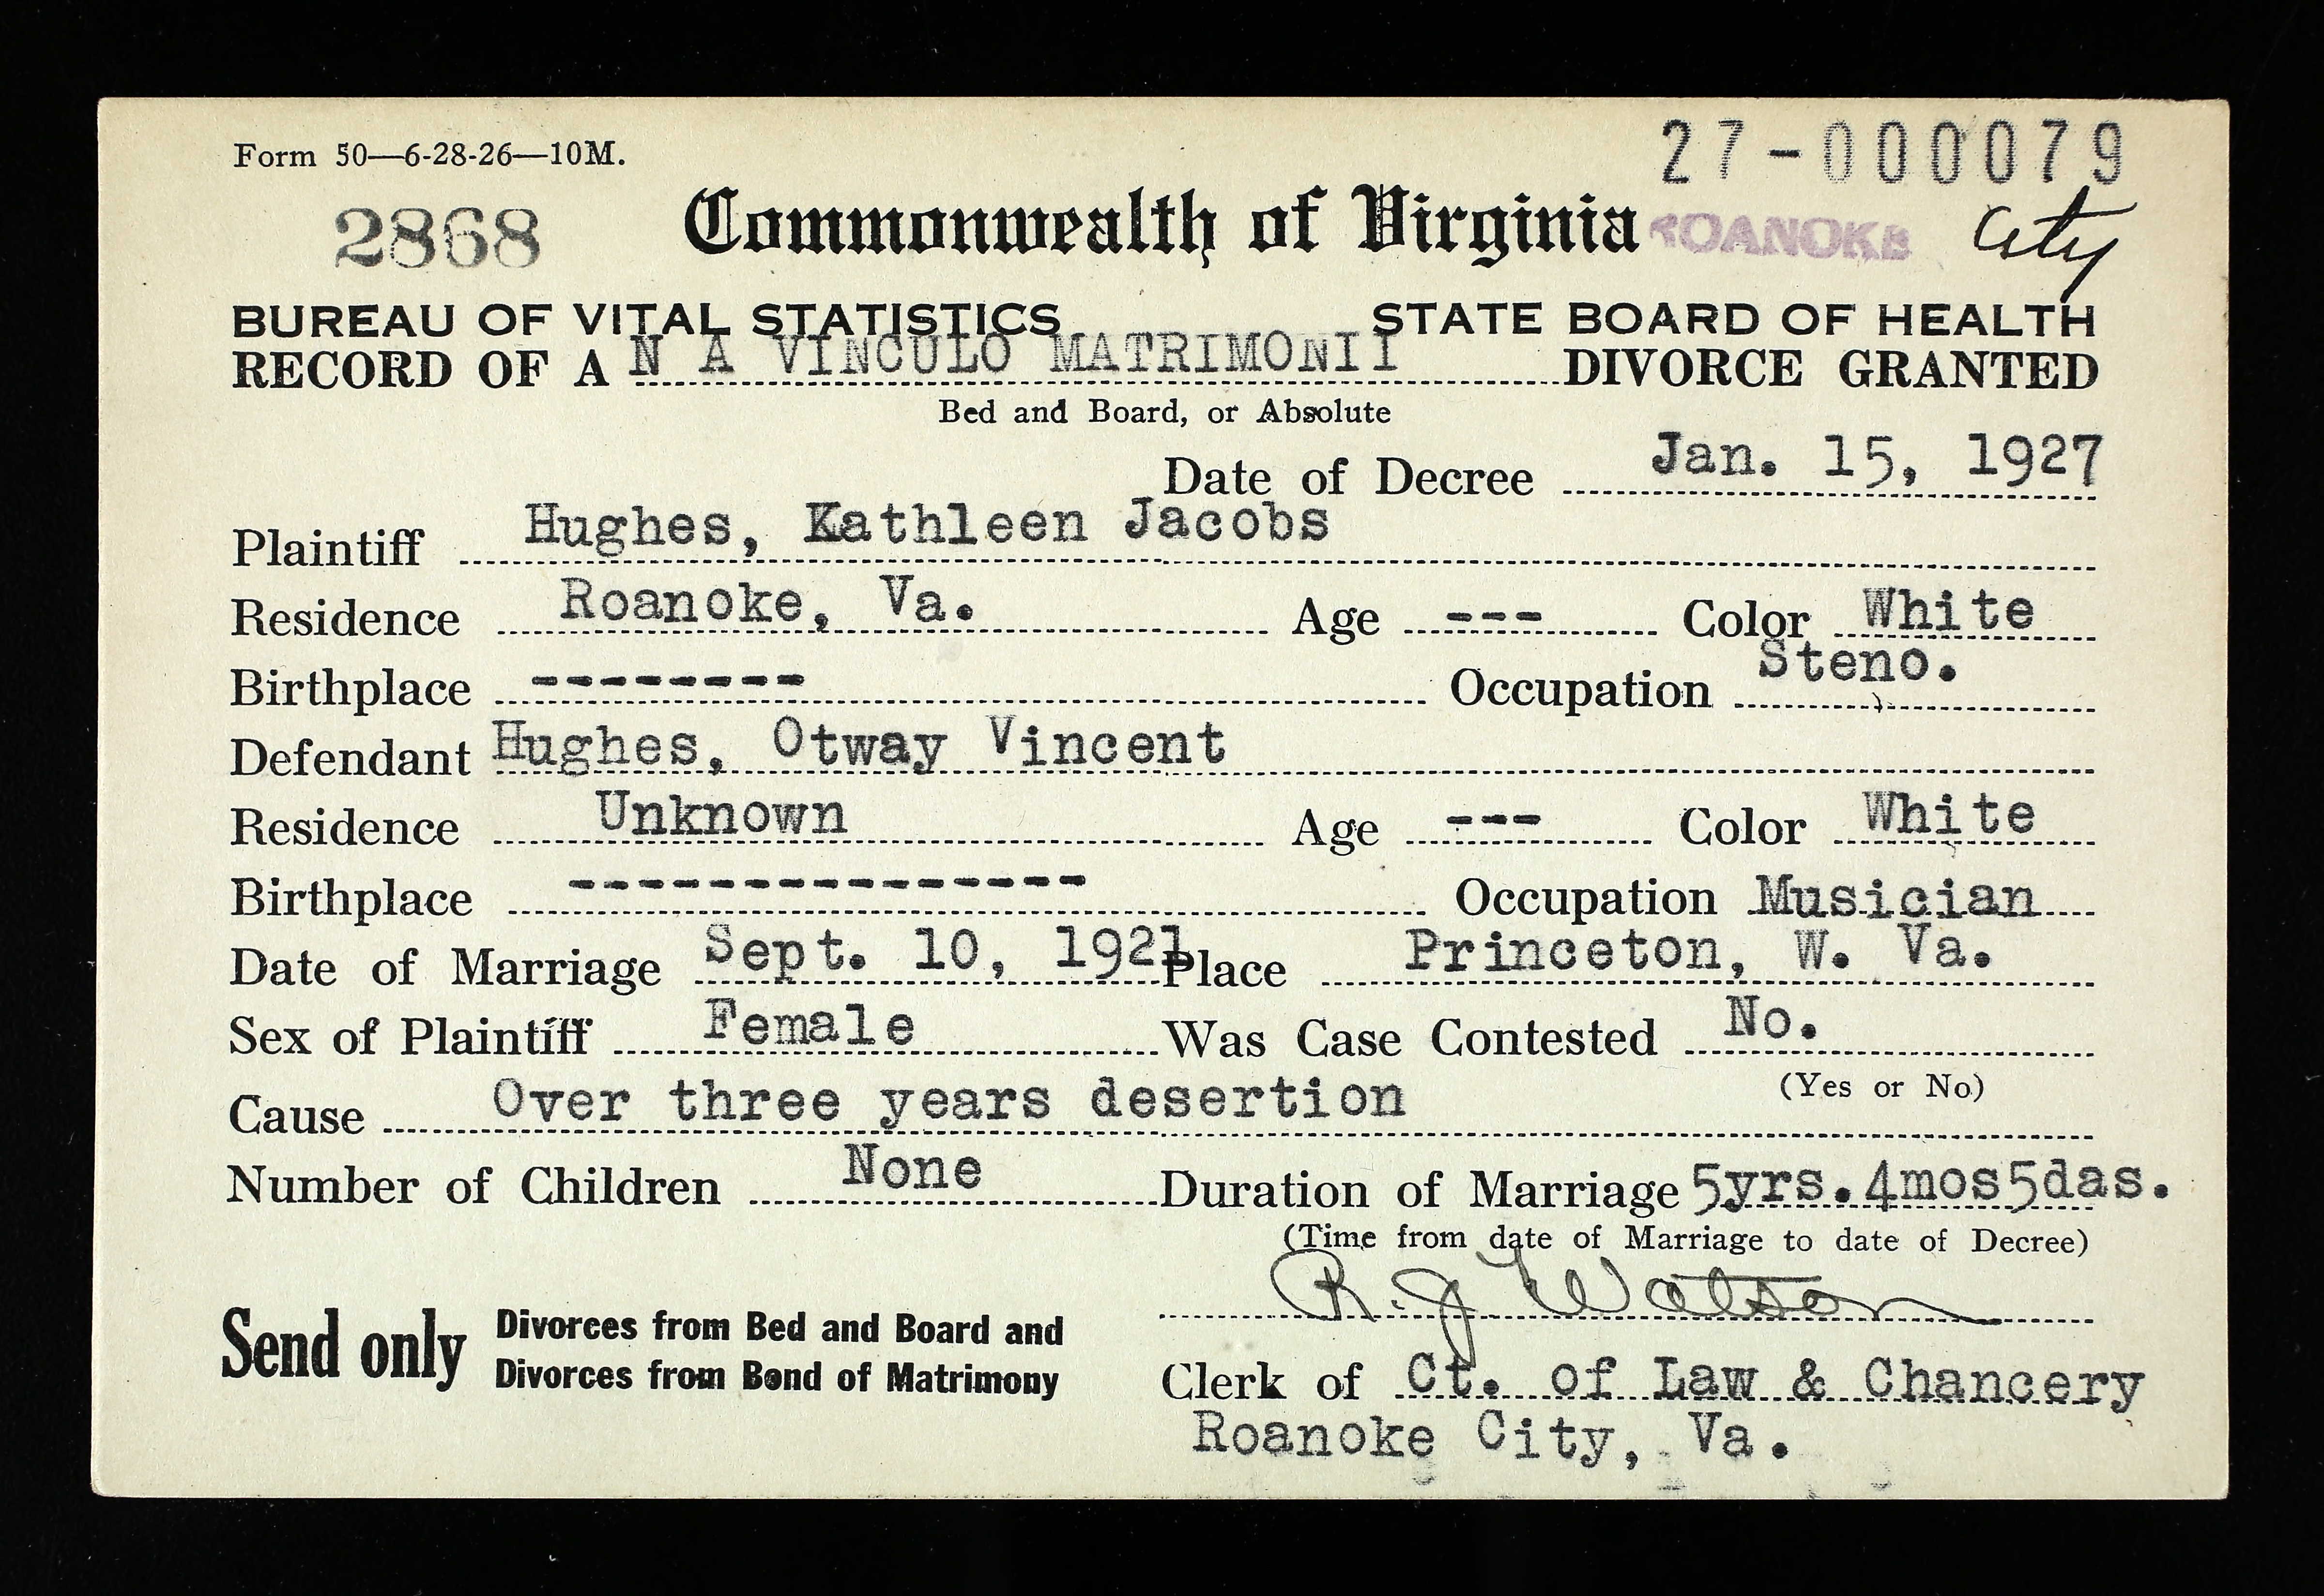 Form 50—6-28-26—10M.
27-000079
2868 Commonwealth of Virginia ROANOKE City
BUREAU OF VITAL STATISTICS STATE BOARD OF HEALTH
RECORD OF A N A VINCULO MATRIMONII DIVORCE GRANTED
Bed and Board, or Absolute
Date of Decree Jan. 15, 1927
Plaintiff Hughes, Kathleen Jacobs
Residence Roanoke, Va. Age --- Color White
Birthplace -------- Occupation Steno.
Defendant Hughes, Otway Vincent
Residence Unknown Age --- Color White
Birthplace --------------- Occupation Musician
Date of Marriage Sept. 10, 1921 Place Princeton, W. Va.
Sex of Plaintiff Female Was Case Contested No.
(Yes or No)
Cause Over three years desertion
Number of Children None Duration of Marriage 5yrs.4mos5das.
(Time from date of Marriage to date of Decree)
R. J Watson
Send only Divorces from Bed and Board and
Divorces from Bond of Matrimony
Clerk of Ct. of Law & Chancery
Roanoke City, Va.